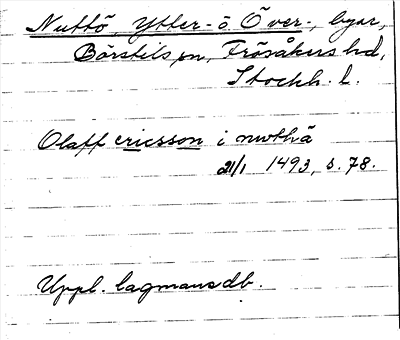 Nuttö, Ytter- o. Över-, byar,
Börstils sn, Frösåkers hd,
Stockh. l.
Olaff ericsson i nwthä
21/1 1493, s. 78.
Uppl. lagmansdb.